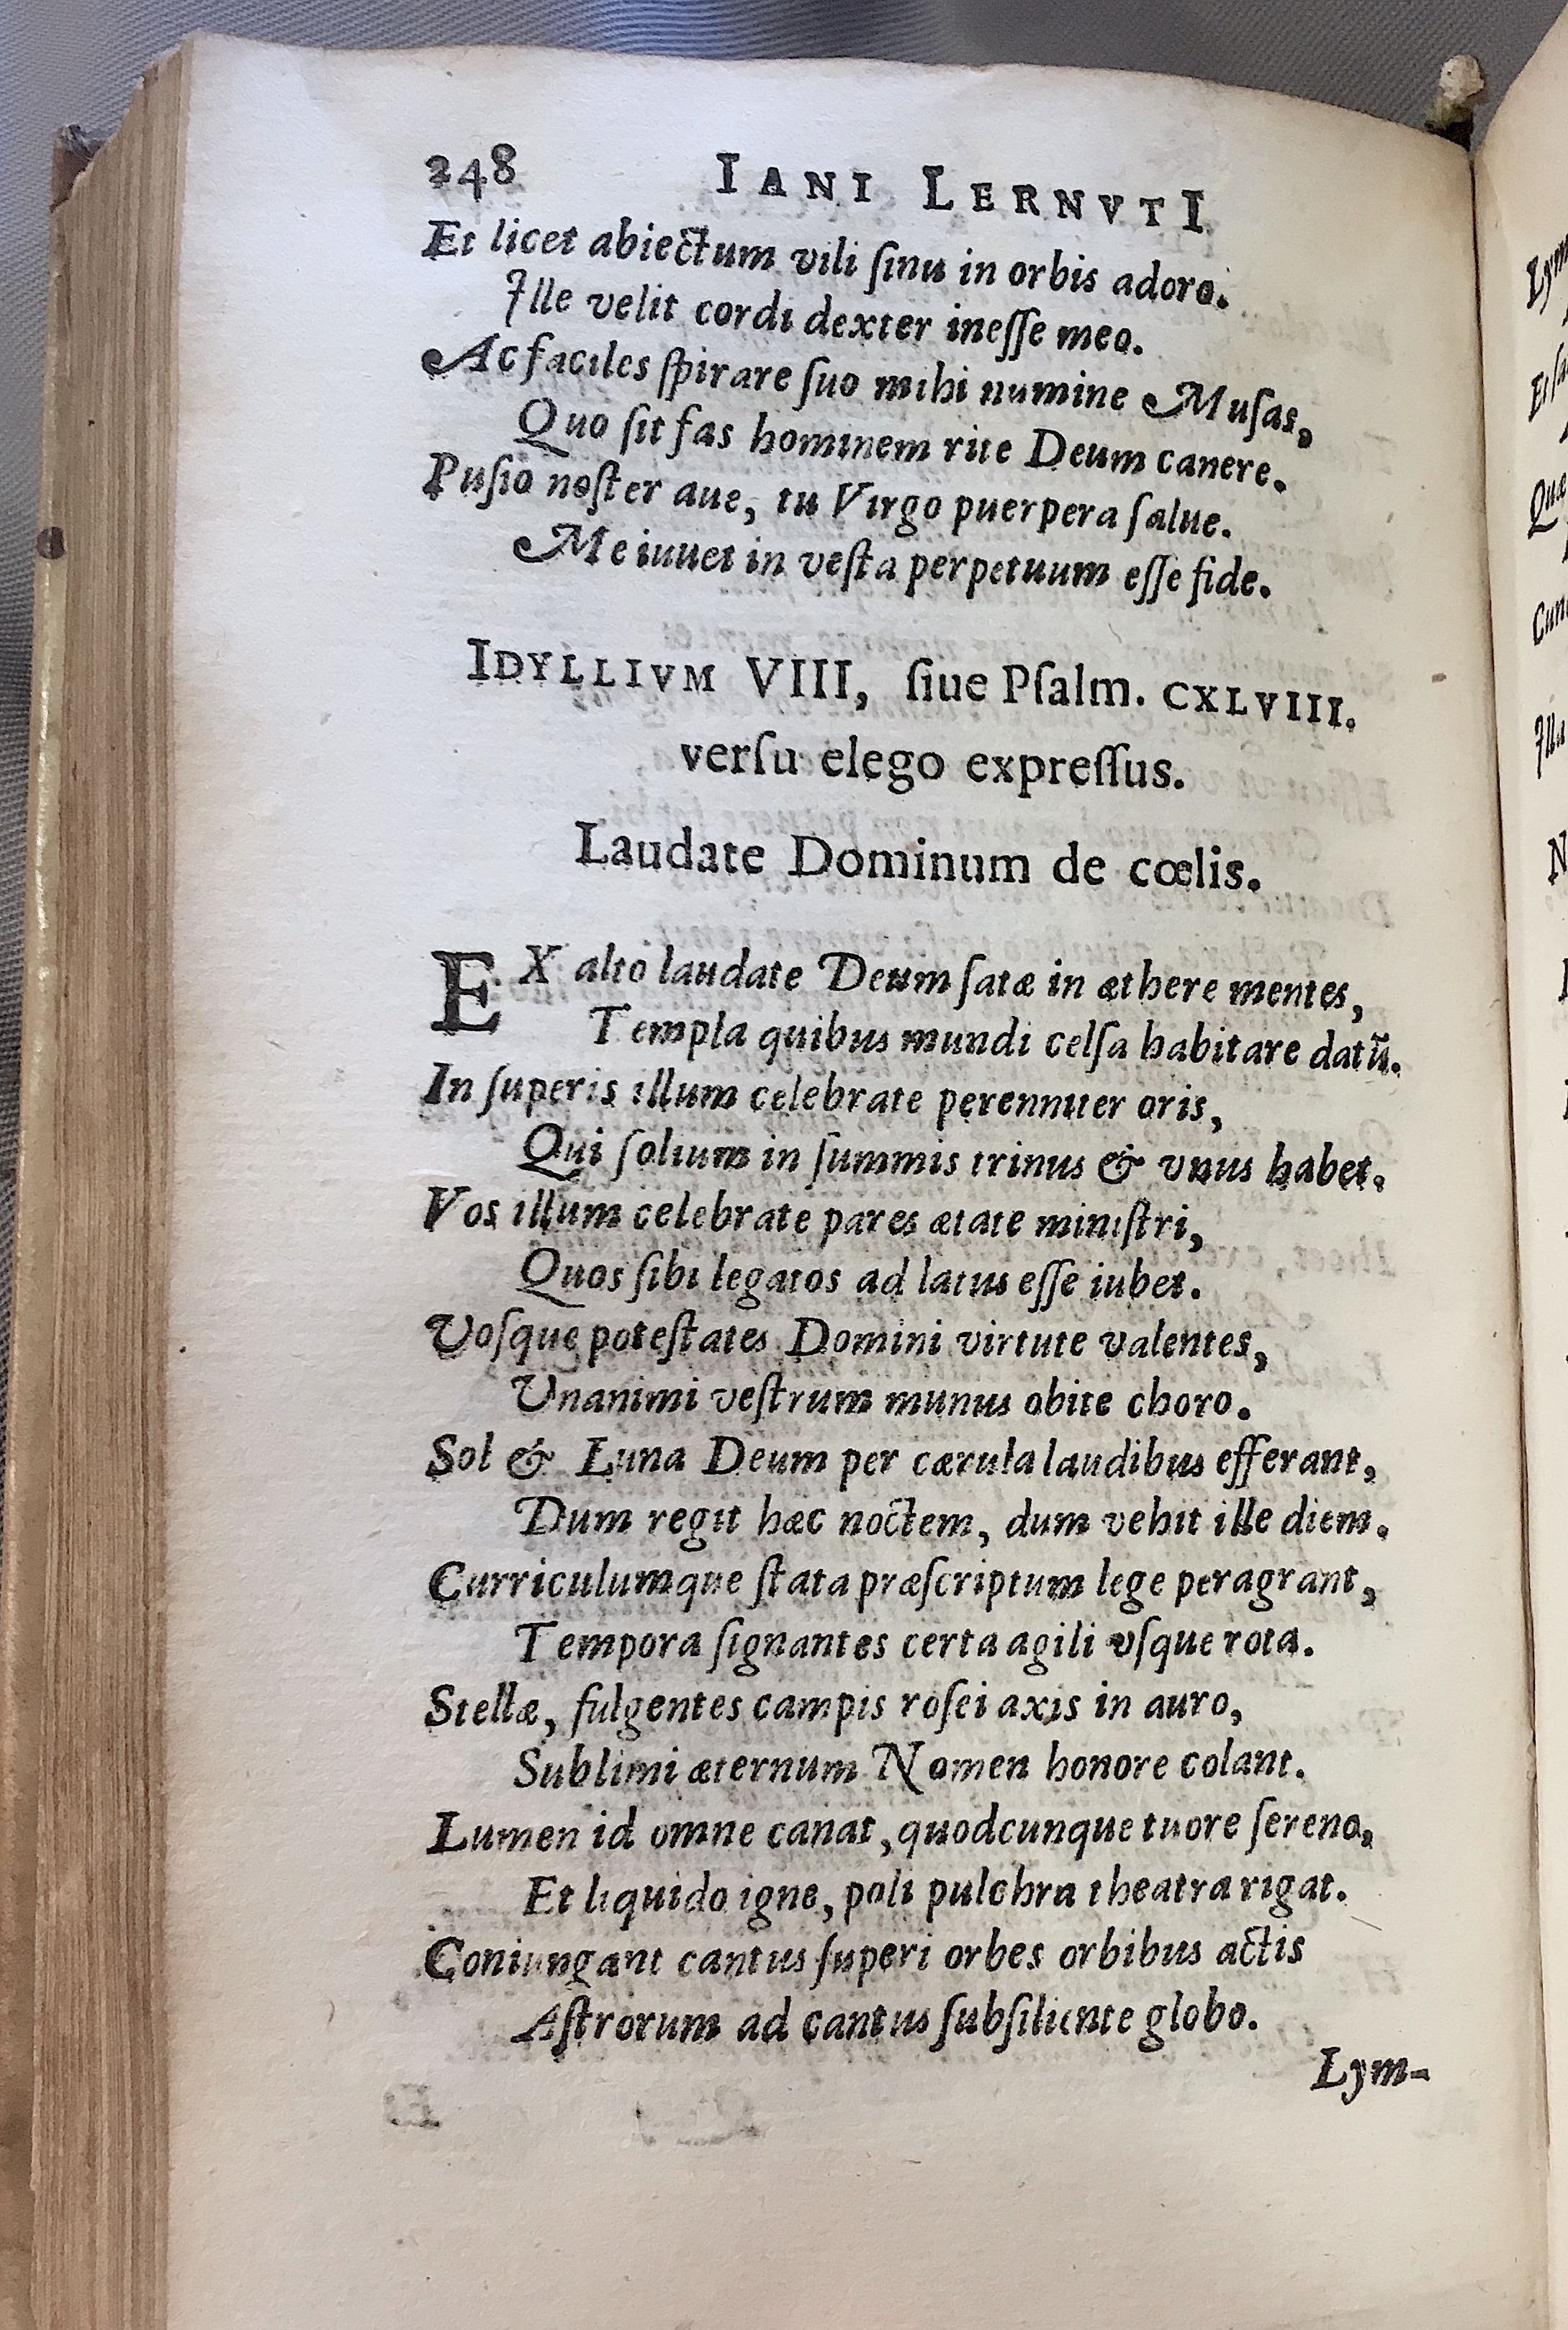 248 IANI LERNVTI
Et licet abiectum vili ſinu in orbis adoro.
Ille velit cordi dexter ineſſe meo.
Ac faciles ſpirare ſuo mihi numine Muſas,
Quo ſit fas hominem rite Deum canere.
Puſio noſter aue, tu Virgo puerpera ſalue.
Me iuuet in veſta perpetuum eſſe fide.
IDYLLIVM VIII, ſiue Pſalm. CXLVIII.
verſu elego expreſſus.
Laudate Dominum de cœlis.
EX alto laudate Deum ſatæ in æthere mentes,
Templa quibus mundi celſa habitare datũ.
In ſuperis illum celebrate perenniter oris,
Qui ſolium in ſummis trinus & vnus habet.
Vos illum celebrate pares ætate miniſtri,
Quos ſibi legatos ad latus eſſe iubet.
Voſque poteſtates Domini virtute valentes,
Unanimi veſtrum munus obite choro.
Sol & Luna Deum per cærula laudibus efferant,
Dum regit hæc noctem, dum vehit ille diem.
Curriculumque ſtata præſcriptum lege peragrant,
Tempora ſignantes certa agili vſque rota.
Stellæ, fulgentes campis roſei axis in auro,
Sublimi æternum Nomen honore colant.
Lumen id omne canat, quodcunque tuore ſereno,
Et liquido igne, poli pulchra theatra rigat.
Coniungant cantus ſuperi orbes orbibus actis
Aſtrorum ad cantus ſubſiliente globo.
Lym-